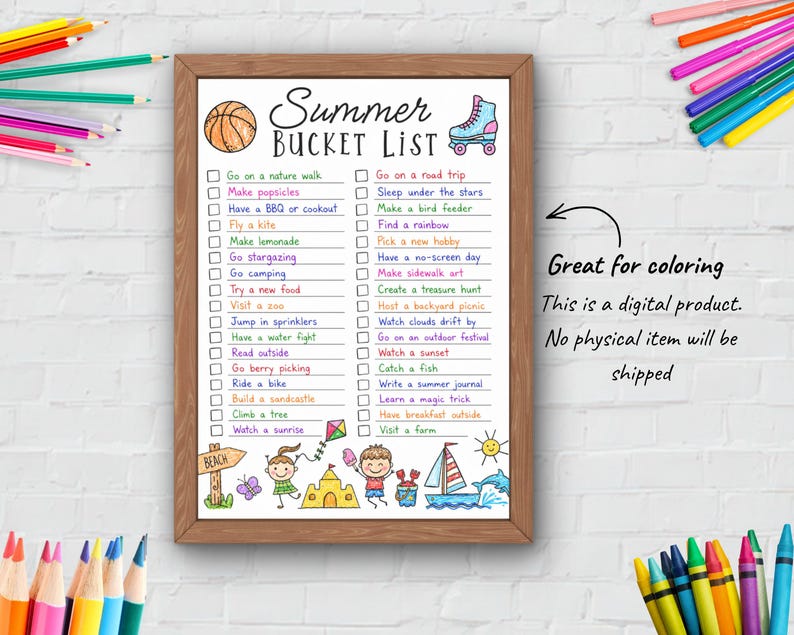 Summer
BUCKET LIST
Go on a nature walk
Make popsicles
Have a BBQ or cookout
Fly a kite
Make lemonade
Go stargazing
Go camping
Try a new food
Visit a zoo
Jump in sprinklers
Have a water fight
Read outside
Go berry picking
Ride a bike
Build a sandcastle
Climb a tree
Watch a sunrise
Go on a road trip
Sleep under the stars
Make a bird feeder
Find a rainbow
Pick a new hobby
Have a no-screen day
Make sidewalk art
Create a treasure hunt
Host a backyard picnic
Watch clouds drift by
Go on an outdoor festival
Watch a sunset
Catch a fish
Write a summer journal
Learn a magic trick
Have breakfast outside
Visit a farm
BEACH
Great for coloring
This is a digital product.
No physical item will be
shipped